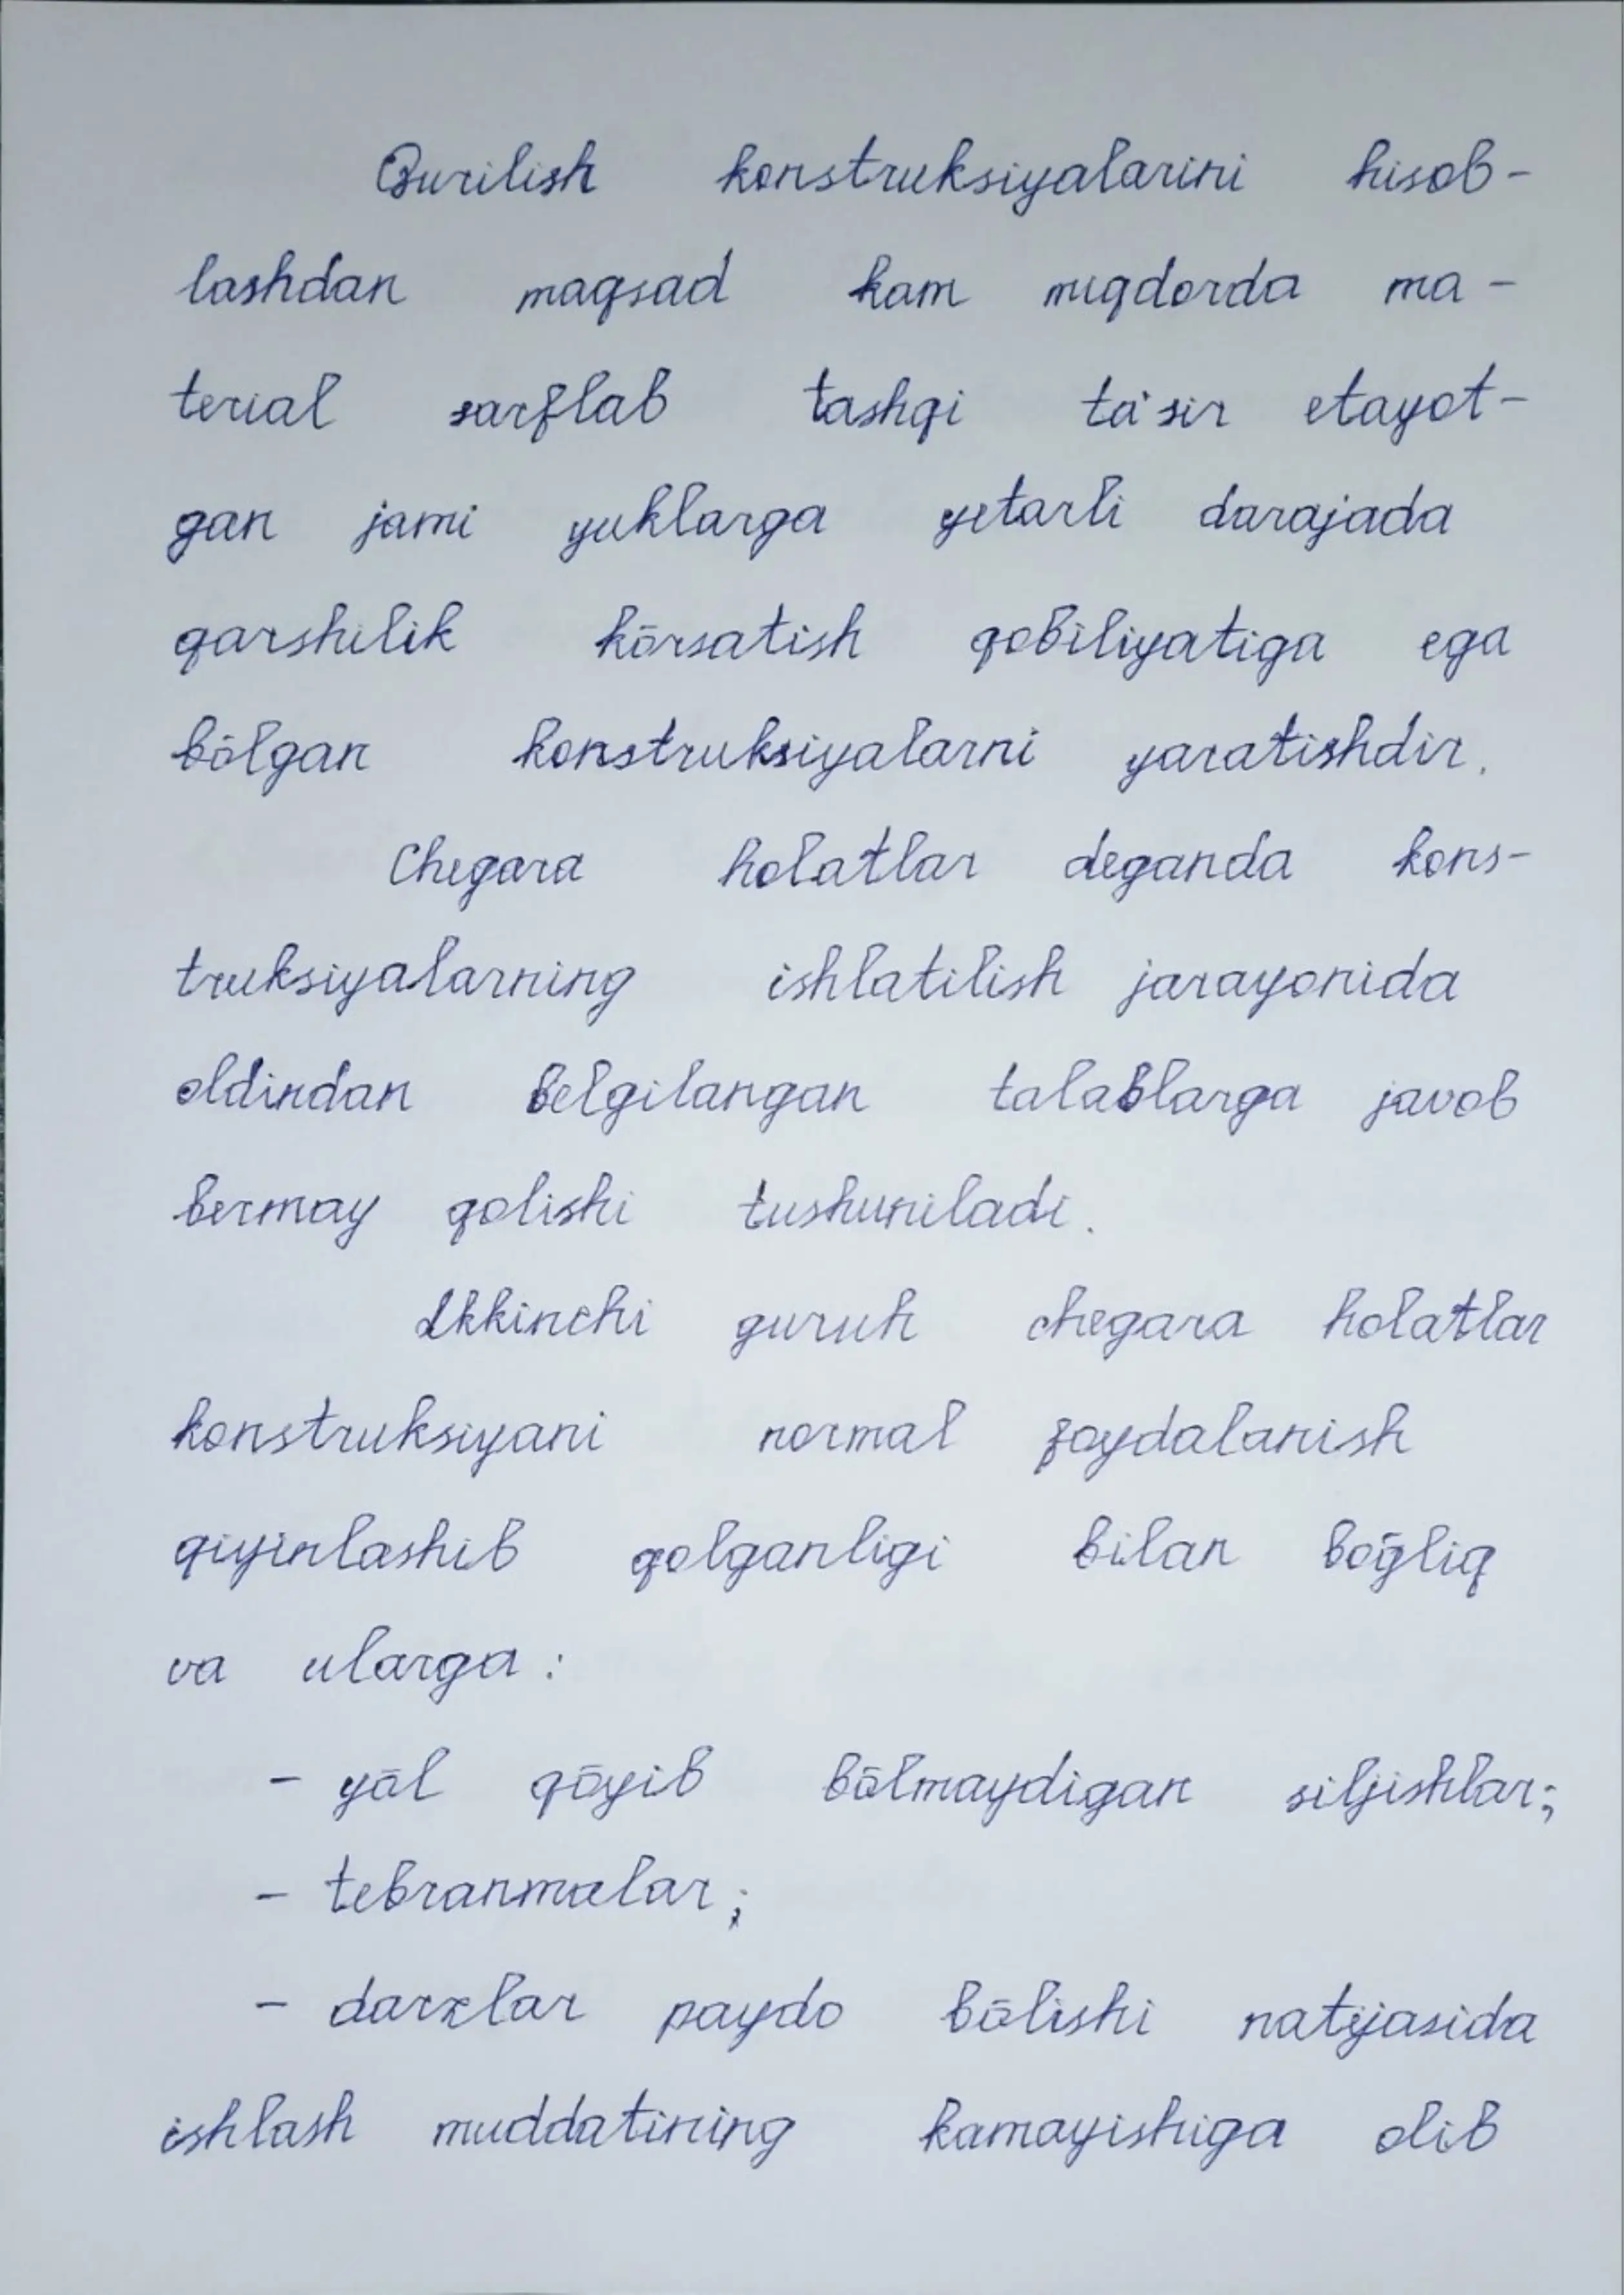 Qurilish konstruksiyalarini hisob-
lashdan maqsad kam miqdorda ma-
terial sarflab tashqi ta'sir etayot-
gan jami yuklarga yetarli darajada
qarshilik kōrsatish qobiliyatiga ega
bōlgan konstruksiyalarni yaratishdir.
Chegara holatlar deganda kons-
truksiyalarning ishlatilish jarayonida
oldindan belgilangan talablarga javob
bermay qolishi tushuniladi.
Ikkinchi guruh chegara holatlar
konstruksiyani normal foydalanish
qiyinlashib qolganligi bilan boḡliq
va ularga:
- yōl qōyib bōlmaydigan siljishlar;
- tebranmalar;
- darzlar paydo bōlishi natijasida
ishlash muddatining kamayishiga olib